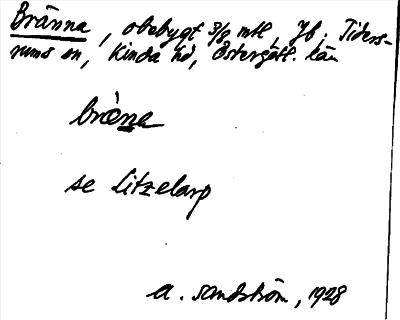 Bränna, obebygt 3/8 mtl, Jb. Tiders-
rums sn, Kinda hd, Östergötl. län
bræ̀na
se Litzelarp
A. Sandström, 1928